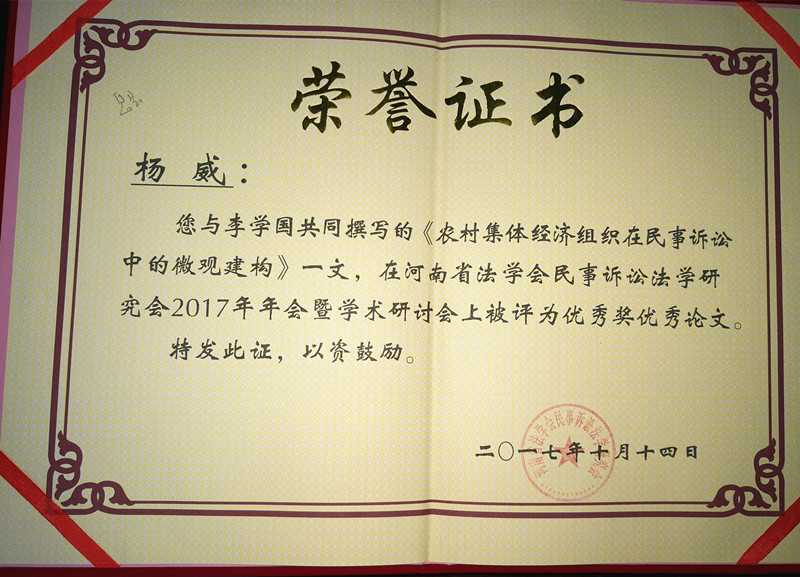 荣誉证书
杨 威：
您与李学国共同撰写的《农村集体经济组织在民事诉讼
中的微观建构》一文，在河南省法学会民事诉讼法学研
究会2017年年会暨学术研讨会上被评为优秀奖优秀论文。
特发此证，以资鼓励。
河南省法学会民事诉讼法学研究会
二〇一七年十月十四日